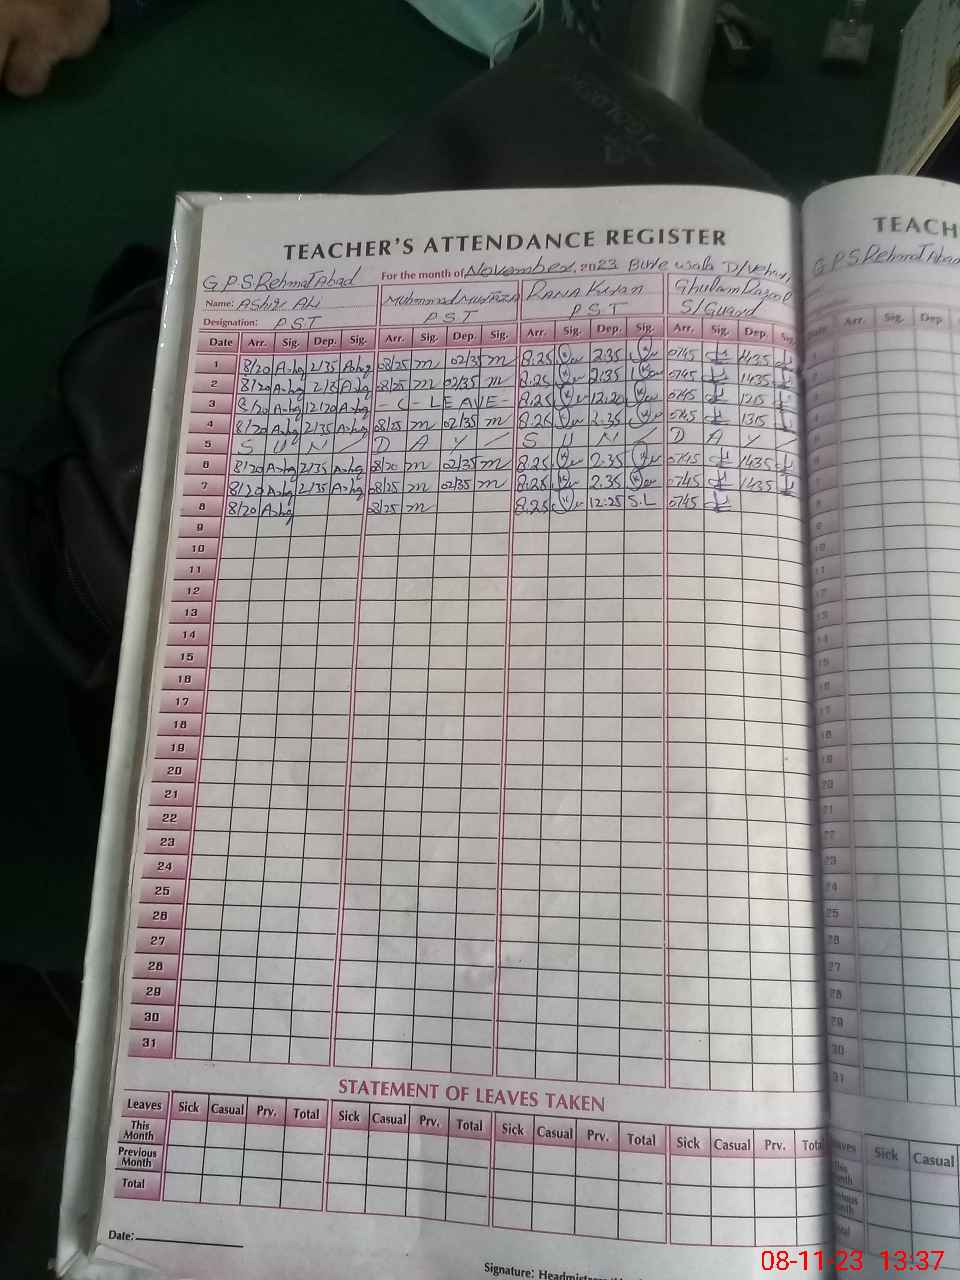 TEACHER'S ATTENDANCE REGISTER
GPS Rehmat Abad For the month of November, 2023
Name: Ashiq Ali Muhammad Murtaza Rana Ghulam Rasool
Designation: PST PST PST S/Guard
Date Arr. Sig. Dep. Sig. Arr. Sig. Dep. Sig. Arr. Sig. Dep. Sig. Arr. Sig. Dep. Sig.
1 8/20 Ashq 2/35 Ashq 08/25 m 02/35 m 8.25 2.35 0745 1435
2 8/20 Ashq 2/35 Ashq 08/25 m 02/35 m 8.25 2.35 0745 1435
3 8/20 Ashq 12/20 Ashq - C - LEAVE - 8.25 12.20 0745 1215
4 8/20 Ashq 2/35 Ashq 08/25 m 02/35 m 8.25 2.35 0745 1315
5 S U N / D A Y / S U N / D A Y /
6 8/20 Ashq 2/35 Ashq 08/20 m 02/35 m 8.25 2.35 0745 1435
7 8/20 Ashq 2/35 Ashq 08/25 m 02/35 m 8.25 2.35 0745 1435
8 8/20 Ashq 08/25 m 8.25 12:25 S.L 0745
9
10
11
12
13
14
15
16
17
18
19
20
21
22
23
24
25
26
27
28
29
30
31
STATEMENT OF LEAVES TAKEN
Leaves Sick Casual Prv. Total Sick Casual Prv. Total Sick Casual Prv. Total Sick Casual Prv. Total
This Month
Previous Month
Total
Date:
Signature:
TEACH
GPS Rehmat Abad
Arr. Sig. Dep
Sick Casual
08-11-23 13:37